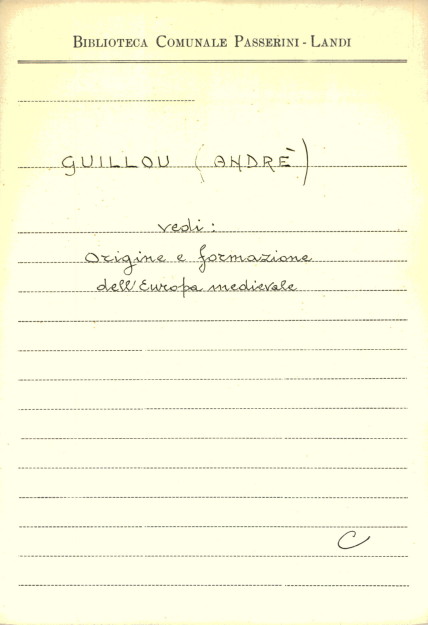 BIBLIOTECA COMUNALE PASSERINI - LANDI
GUILLOU (ANDRÈ)
vedi:
Origine e formazione
dell'Europa medievale
C